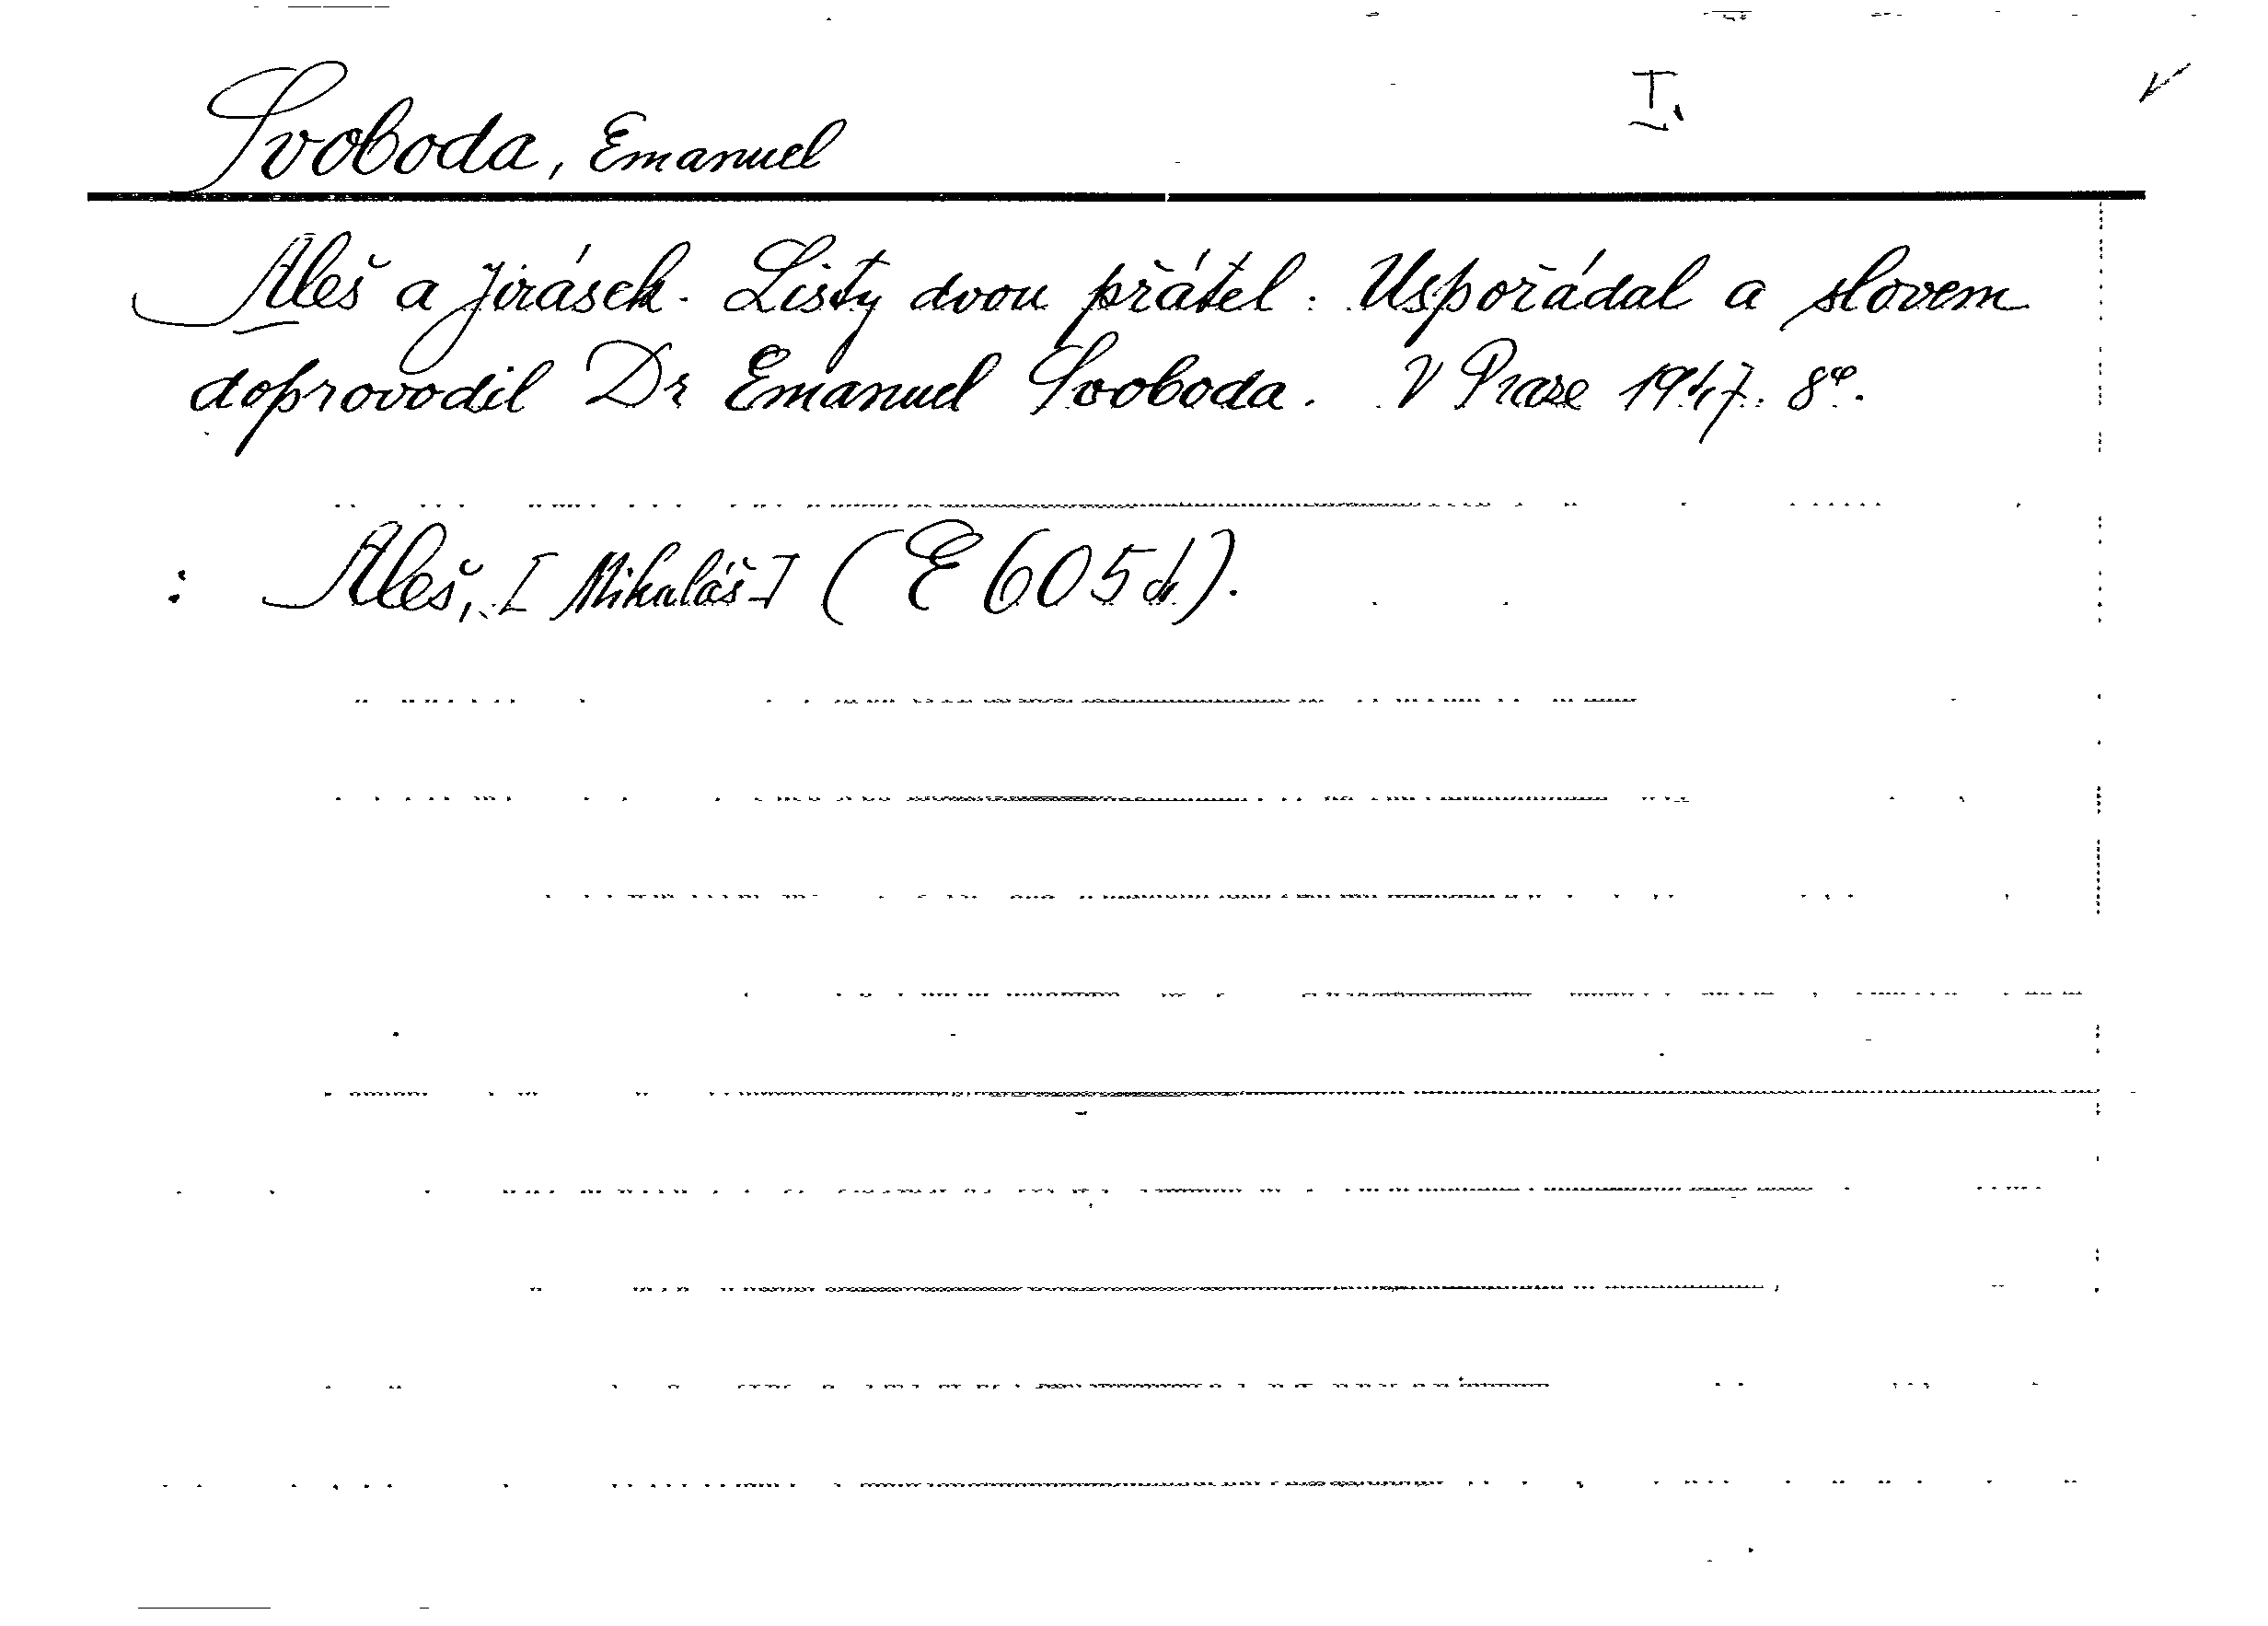 Svoboda, Emanuel I. V
Aleš a Jirásek. Listy dvou přátel. Uspořádal a slovem
doprovodil Dr Emanuel Svoboda. V Praze 1947. 8°.
: Aleš, [Mikuláš] (E 605d).